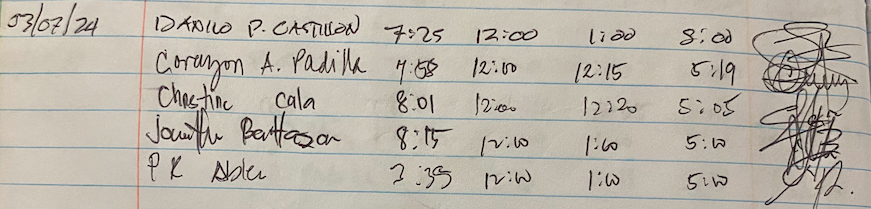 03/07/24 DANILO P. CASTILLON 7:25 12:00 1:00 8:00
Corazon A. Padilla 7:58 12:00 12:15 5:19
Christine Cala 8:01 12:00 12:20 5:05
8:15 12:00 1:00 5:00
P K 12:00 1:00 5:00